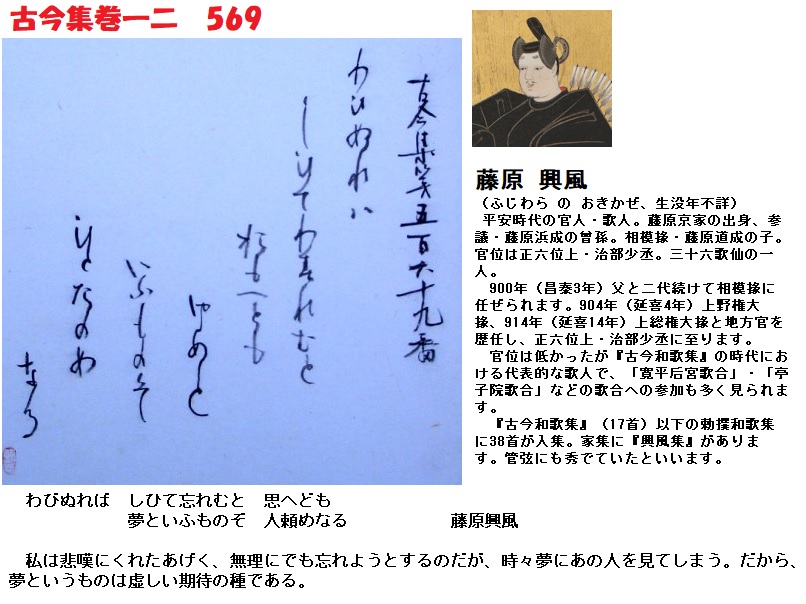 古今集巻一二　569
古今集第五百六十九番
わひぬれは
しひてわすれむと
おもへとも
ゆめと
いふものそ
ひとたのめ
なる
藤原 興風
（ふじわら の おきかぜ、生没年不詳）
平安時代の官人・歌人。藤原京家の出身、参
議・藤原浜成の曽孫。相模掾・藤原道成の子。
官位は正六位上・治部少丞。三十六歌仙の一
人。
900年（昌泰3年）父と二代続けて相模掾に
任ぜられます。904年（延喜4年）上野権大
掾、914年（延喜14年）上総権大掾と地方官を
歴任し、正六位上・治部少丞に至ります。
官位は低かったが『古今和歌集』の時代にお
ける代表的な歌人で、「寛平后宮歌合」・「亭
子院歌合」などの歌合への参加も多く見られま
す。
『古今和歌集』（17首）以下の勅撰和歌集
に38首が入集。家集に『興風集』がありま
す。管弦にも秀でていたといいます。
わびぬれば　しひて忘れむと　思へども
夢といふものぞ　人頼めなる　藤原興風
私は悲嘆にくれたあげく、無理にでも忘れようとするのだが、時々夢にあの人を見てしまう。だから、
夢というものは虚しい期待の種である。